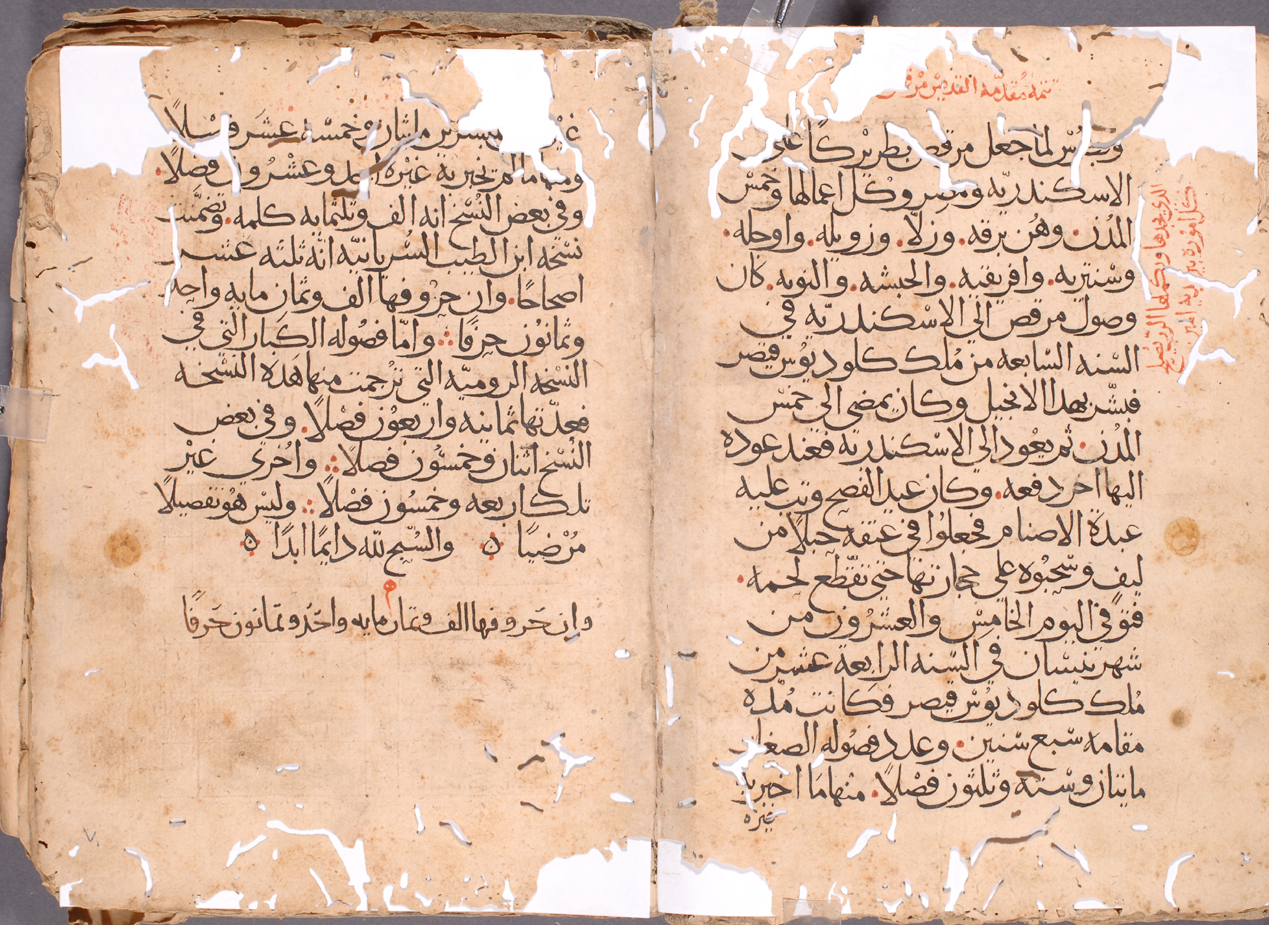 تتمة مقدمة القديس مرقس
وبطرس لما جعل مرقص بطريركًا على
الاسكندريه ومصر وكل اعمالها وخمس
المدن. وهن برقه. وزلا. وزويله. واوجله.
وسنتريه. وافريقيه. والحبشه. والنوبه. كان
وصول مرقص الى الاسكندريه في
السنه السابعه من مُلك كلوديوس قيصر
فبشر بهدا الانجيل وكان يمضي الى خمس
المدن. ثم يعود الى الاسكندريه فعند عوده
اليها اخر دفعه. وكان عيد الفصح وتب عليه
عبدة الاصنام فجعلوا في عنقه حبلًا من
ليف وسحبوه على حجارتها حتى تقطع لحمه.
فتوفي اليوم الخامس والعشرون من
شهر نيسان في السنه الرابعة عشر من
مُلك كلوديوس قيصر فكانت مُدة
مقامه سبع سنين. وعدد فصوله الصغار
مايتان وسته وثلثون فصلًا. منها ما اخبر به
غيره
من مايتان وخمسة عشر فصلًا
ومنها ما لم يخبر به غيره احد وعشرون فصلًا.
وفي بعض النسخ انه الف وثلثمايه كلمه. وتضمنت
نسخة ابن الطيب السريانيه انه ثلثه عشر
اصحاحًا. وان حروفها الف وثمان مايه واحد
وثمانون حرفًا وامّا فصوله الكبار التي في
النسخه الروميه التي ترجمت منها هذه النسخه
فعدّتها ثمانيه واربعون فصلًا. وفي بعض
النسخ اثنان وخمسون فصلا واخري غير
تلك اربعه وخمسون فصلًا وليس هو تفصيلًا
مرضيًا والسبح لله دايمًا ابدًا
وان حروفها الف وثمان مايه واحد وثمانون حرفًا